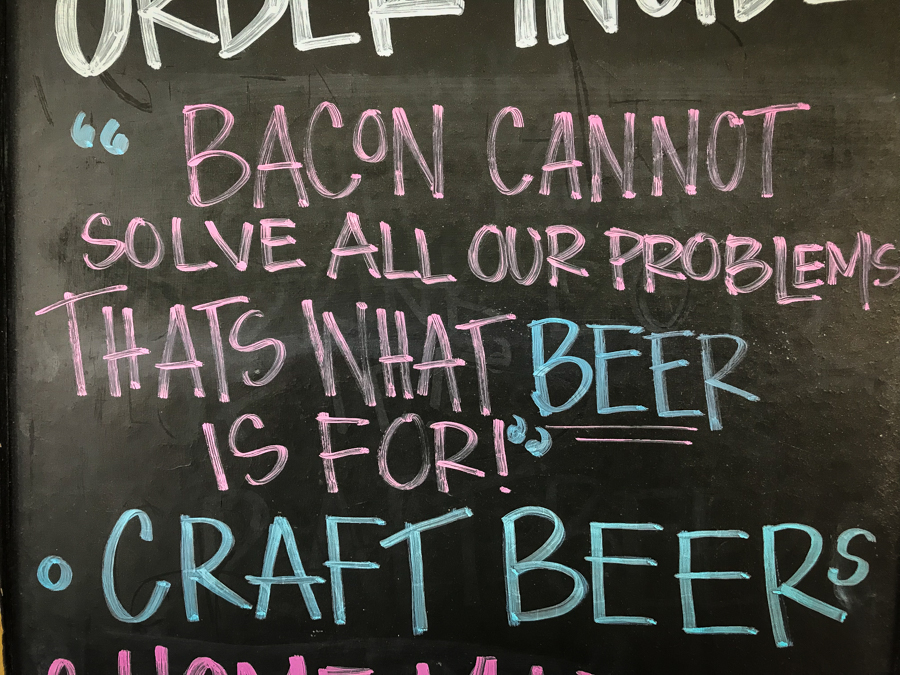 ORDER INSIDE
“ BACON CANNOT
SOLVE ALL OUR PROBLEMS
THATS WHAT BEER
IS FOR!”
○ CRAFT BEERS
HOME